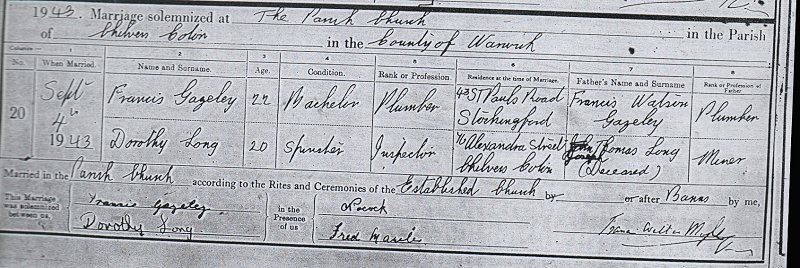 1943. Marriage solemnized at The Parish Church in the Parish
of Chilvers Coton in the County of Warwick
Columns:— 1 2 3 4 5 6 7 8
No. When Married. Name and Surname. Age. Condition. Rank or Profession. Residence at the time of Marriage. Father's Name and Surname Rank or Profession of Father
20 Sept 4th 1943 Francis Gazeley 22 Bachelor Plumber 43 St Pauls Road Stockingford Francis Watson Gazeley Plumber
Dorothy Long 20 Spinster Inspector 76 Alexandra Street Chilvers Coton Joseph Thomas Long (Deceased) Miner
Married in the Parish Church according to the Rites and Ceremonies of the Established Church by or after Banns by me,
This Marriage was solemnized between us, Francis Gazeley Dorothy Long in the Presence of us Fred